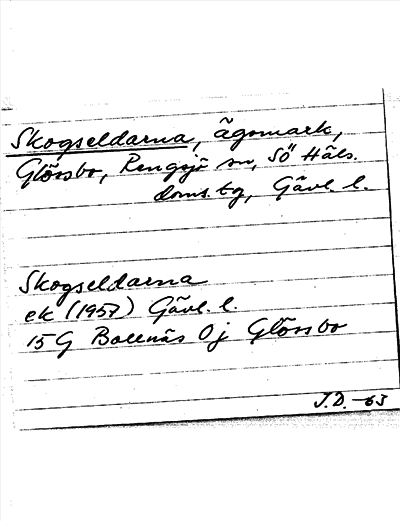 Skogseldarna, ägomark,
Glössbo, Rengsjö sn, Sö Häls.
doms. tg, Gävl. l.
Skogseldarna
ek (1957) Gävl. l.
15 G Bollnäs 0j Glössbo
J.D. -63